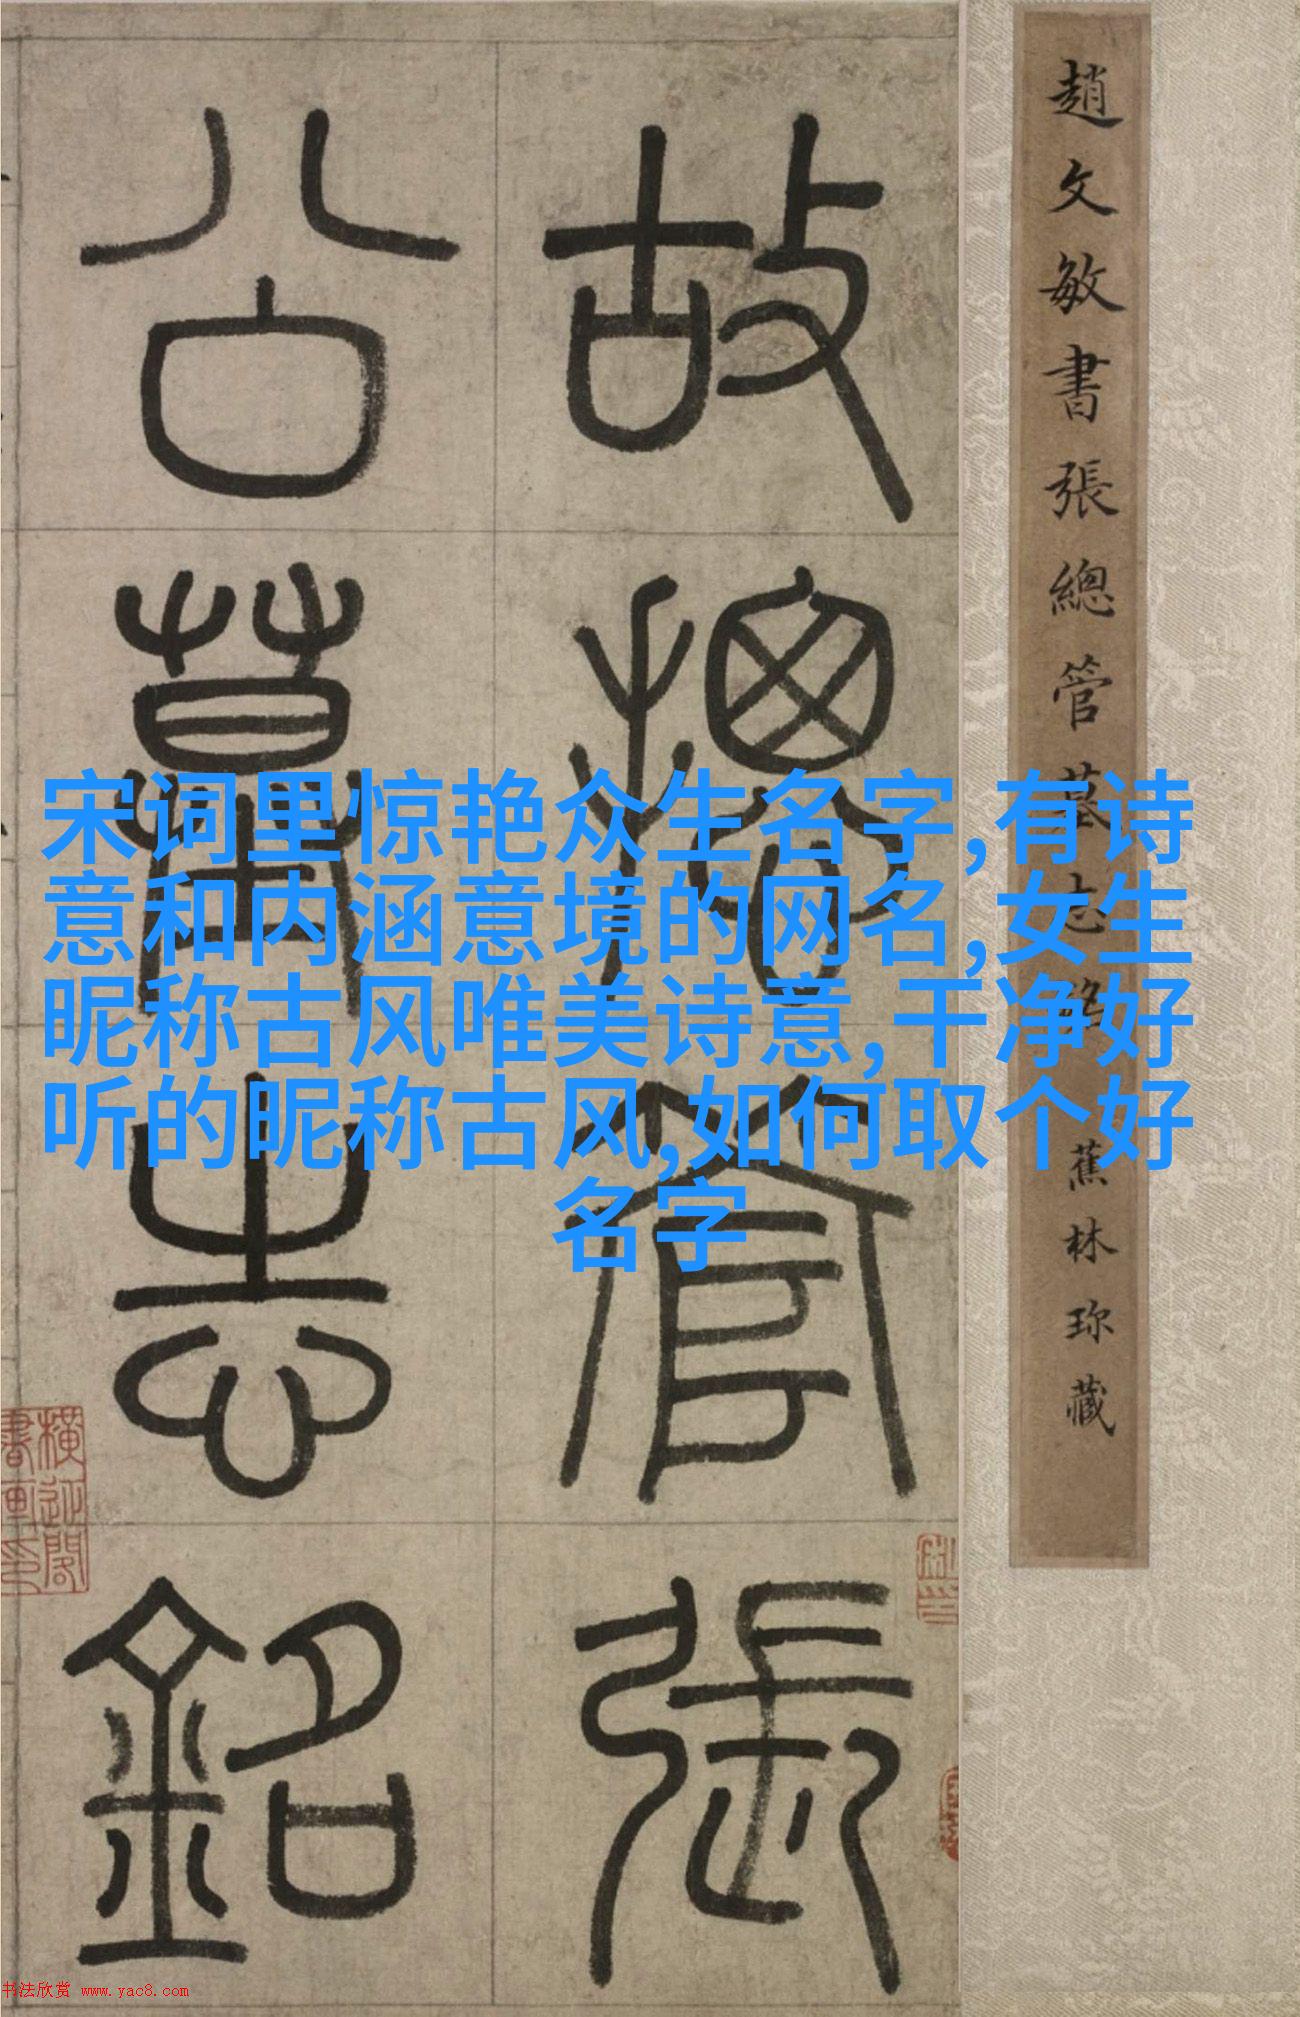 趙文敏書張總管墓志銘 蕉林珍藏
故揔管張
公墓志銘
宋词里惊艳众生名字,有诗
意和内涵意境的网名,女生
昵称古风唯美诗意,干净好
听的昵称古风,如何取个好
名字
书法欣赏 www.yac8.com